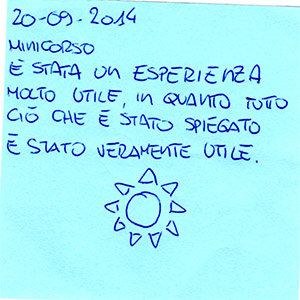 20-09-2014
MINICORSO
È STATA UN ESPERIENZA
MOLTO UTILE, IN QUANTO TUTTO
CIÒ CHE È STATO SPIEGATO
È STATO VERAMENTE UTILE.